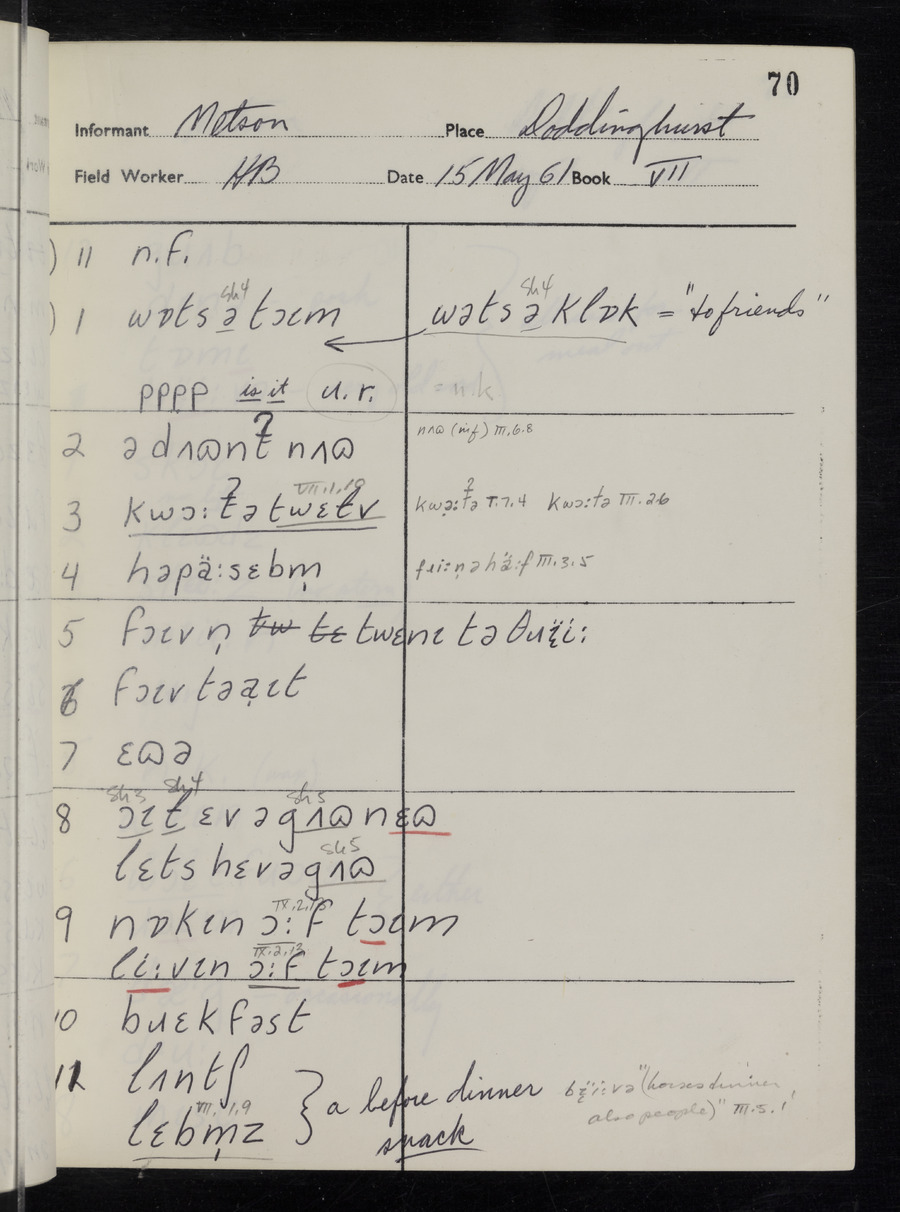 70
Informant Metson Place Doddinghurst
Field Worker HB Date 15 May 61 Book VII
) 11 n.f.
sh4 sh4
) 1 wɒts ə tɔɪm wəts ə klɒk = "to friends"
pppp is it u.r. = n.k
2 ə dʌɷnt̬ʔ nʌɷ nʌɷ (inf) III.6.8
VII.1.10
3 kwɔ:t̬ʔə twɛtv kwə:t̬ʔə I.7.4 kwɔ:tə III.2.6
4 həpä:sɛbm̩ fɹi:n̩əhä:f III.3.5
5 fɔɪv n̩ tw tɛ twɛnɪ tə θɹi:
6 fɔɪv təɛɪt
7 ɛɷə
sh3 sh4 sh5
8 ɔɪt ɛvəgʌɷnɛɷ
sh5
lɛts hɛvəgʌɷ
IX.2.13
9 nɒkɪn ɔ:f tɔɪm
IX.2.13
li:vɪn ɔ:f tɔɪm
10 bɹɛkfəst
12 lʌntʃ
} a before dinner snack
VII.1.9
lɛbm̩z
bɛ̈i:və "(horses dinner
also people)" III.5.1